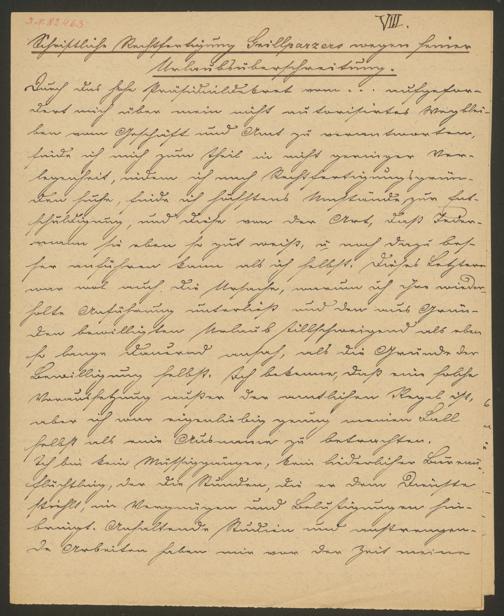 J.N. 82463
VIII.
Schriftliche Rechtfertigung Grillparzers wegen seiner
Urlaubsüberschreitung.
Durch das hohe Präsidialdekret vom . . . aufgefor-
dert mich über mein nicht autorisirtes Wegblei-
ben vom Geschäft und Amt zu verantworten,
finde ich mich zum Theil in nicht geringer Ver-
legenheit, indem ich nach Rechtfertigungsgrün-
den suche, finde ich höchstens Umstände zur Ent-
schuldigung, und diese von der Art, daß Jeder-
mann sie eben so gut weiß, u noch dazu bes-
ser anführen kann als ich selbst. Dieses Letztere
war wol auch die Ursache, warum ich ihre wieder-
holte Anführung unterließ und den aus Grün-
den bewilligten Urlaub stillschweigend als eben
so lange dauernd ansah, als die Gründe der
Bewilligung selbst. Ich bekenne, daß eine solche
Voraussetzung außer der amtlichen Regel ist,
aber ich war eigenliebig genug meinen Fall
selbst als eine Ausname zu betrachten.
Ich bin kein Müssiggänger, kein liederlicher Bureau-
flüchtling, der die Stunden, die er dem Dienste
stiehlt, in Vergnügen und Belustigungen hin-
bringt. Anhaltende Studien und anstrengen-
de Arbeiten haben mir vor der Zeit meine